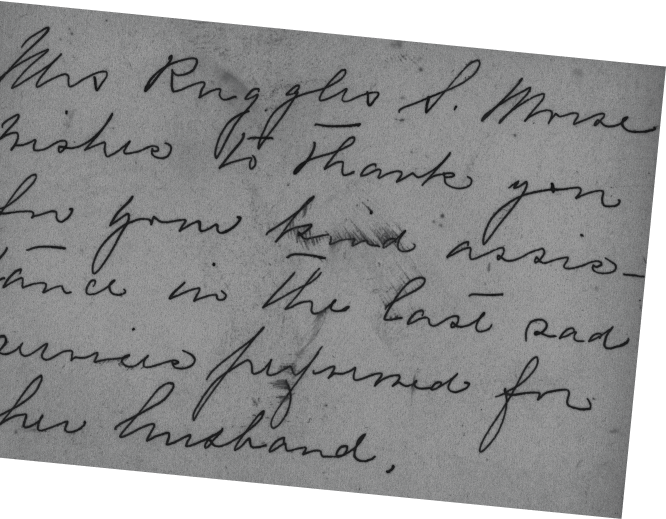 Mrs Ruggles S. Morse
wishes to thank you
for your kind assis-
tance in the last sad
services performed for
her husband.